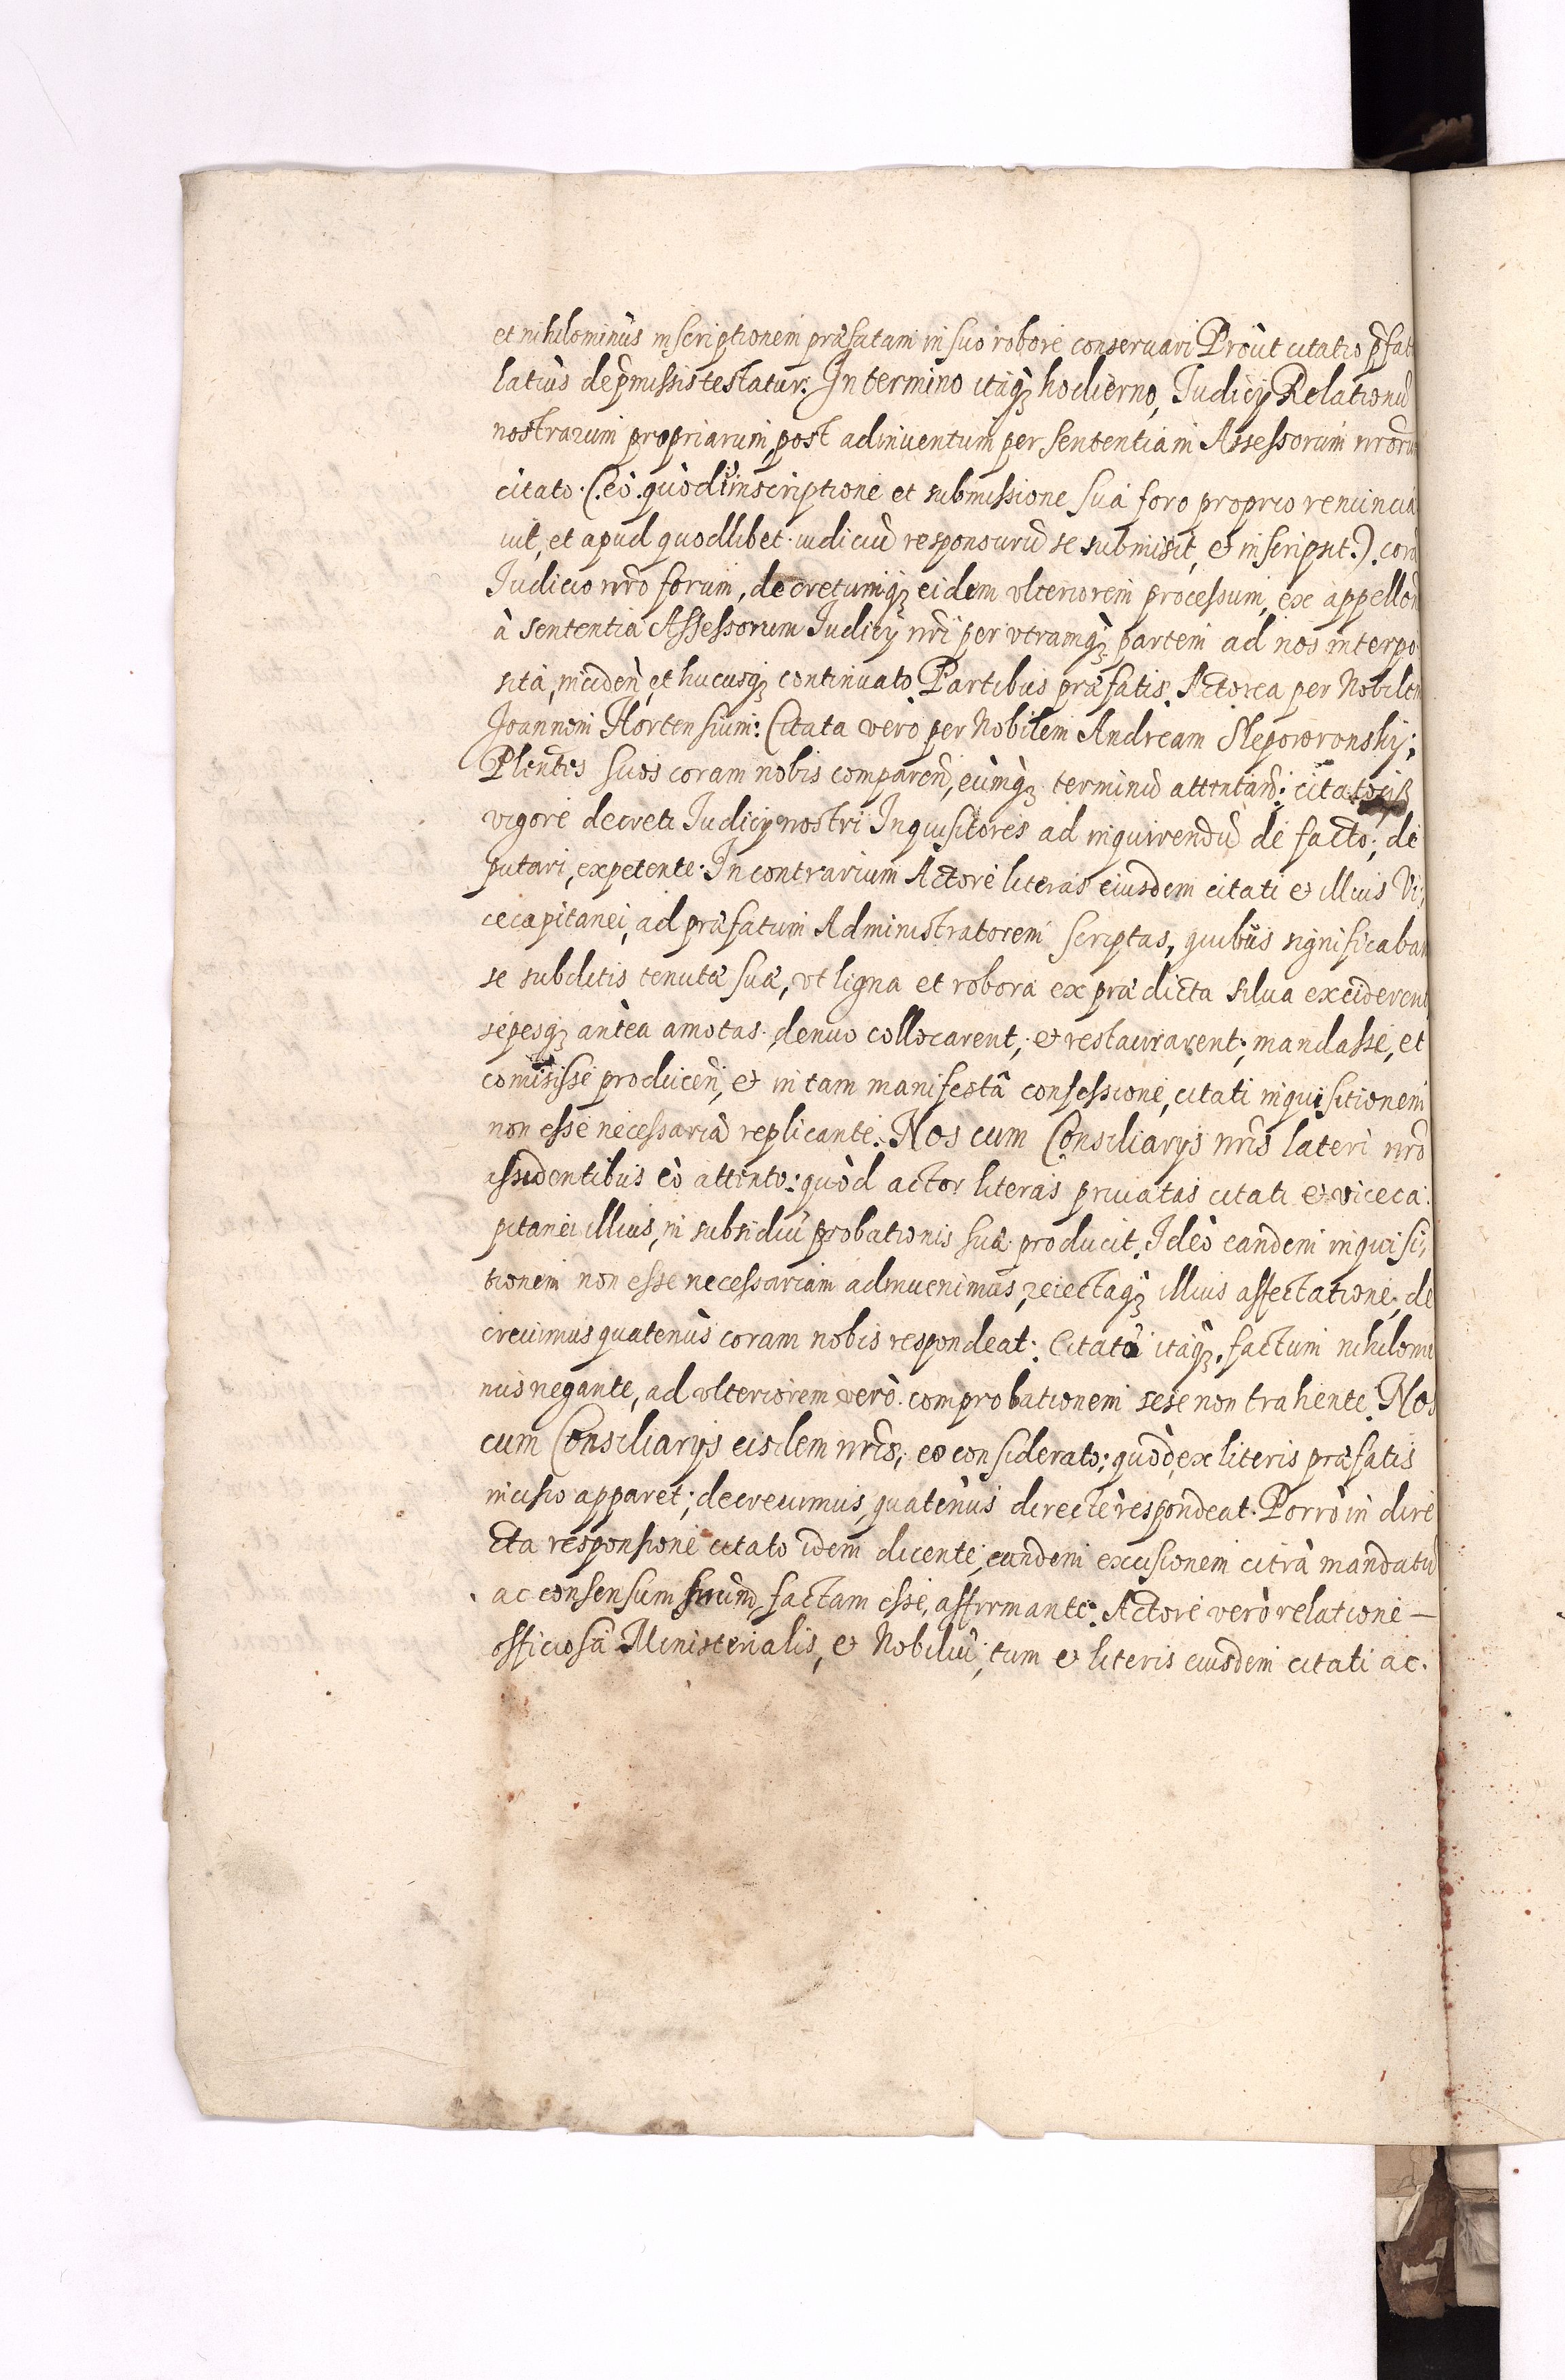 et nihilominùs inscriptionem præfatam in suo robore conseruari Proùt citatio p̃fat
latiùs de p̃missis testatur. In termino itaq̃ hodierno, Iudicij Relationũ
nostrarum propriarum, post adinuentum per sententiam Assessorum nrõru
citato (eò quòd inscriptione et submissione suâ foro proprio renuncia
uit, et apud quodlibet iudiciũ responsurũ se submisit, & inscripsit.) corã
Iudicio nrõ forum, decretumq̃ eidem vlteriorem processum, ex appellõn
à sententia Assessorum Iudicij nri per vtramq̃ partem ad nos interpo
sita, inciden̄, et hucusq̃ continuato. Partibus præfatis. Actorea per Nobilem
Joannem Hortensium: Citata verò per Nobilem Andream Sleporonskij:
Plentes suos coram nobis comparen̄, eumq̃ terminũ attentan̄:
vigore decreti Iudicij nostri Inquisitores ad inquirendũ de facto, de
putari, expetente. In contrarium Actore literas eiusdem citati & illius Vi,
cecapitanei, ad præfatum Administratorem scriptas, quibus significaban
se subditis tenutæ suæ, vt ligna et robora ex prædicta silua exciderent
sepesq̃ antea amotas denuo collocarent, & restaurarent, mandasse, et
comisisse producen̄, & in tam manifestâ confessione, citati inquisitionem
non esse necessariã replicante. Nos cum Consiliarijs nris lateri nrõ
assidentibus eò attento: quòd actor literas priuatas citati & viceca
pitanei illius, in subsidiũ probationis suæ producit. Ideò eandem inquisi,
tionem non esse necessariam adinuenimus, reiectaq̃ illius affectatione, de
creuimus quatenùs coram nobis respondeat. Citato itaq̃, factum nihilomi
nus negante, ad vlteriorem verò comprobationem sese non trahente. Nos
cum Consiliarijs eisdem nris, eo considerato: quòd ex literis præfatis
incisio apparet; decreuimus, quatenùs directè respondeat. Porrò in dire
cta responsione citato idem dicente, eandem excisionem citrà mandatũ
ac consensum suum, factam esse, affirmante. Actore verò relatione —
officiosâ Ministerialis, & Nobiliũ, tum & literis eiusdem citati ac.